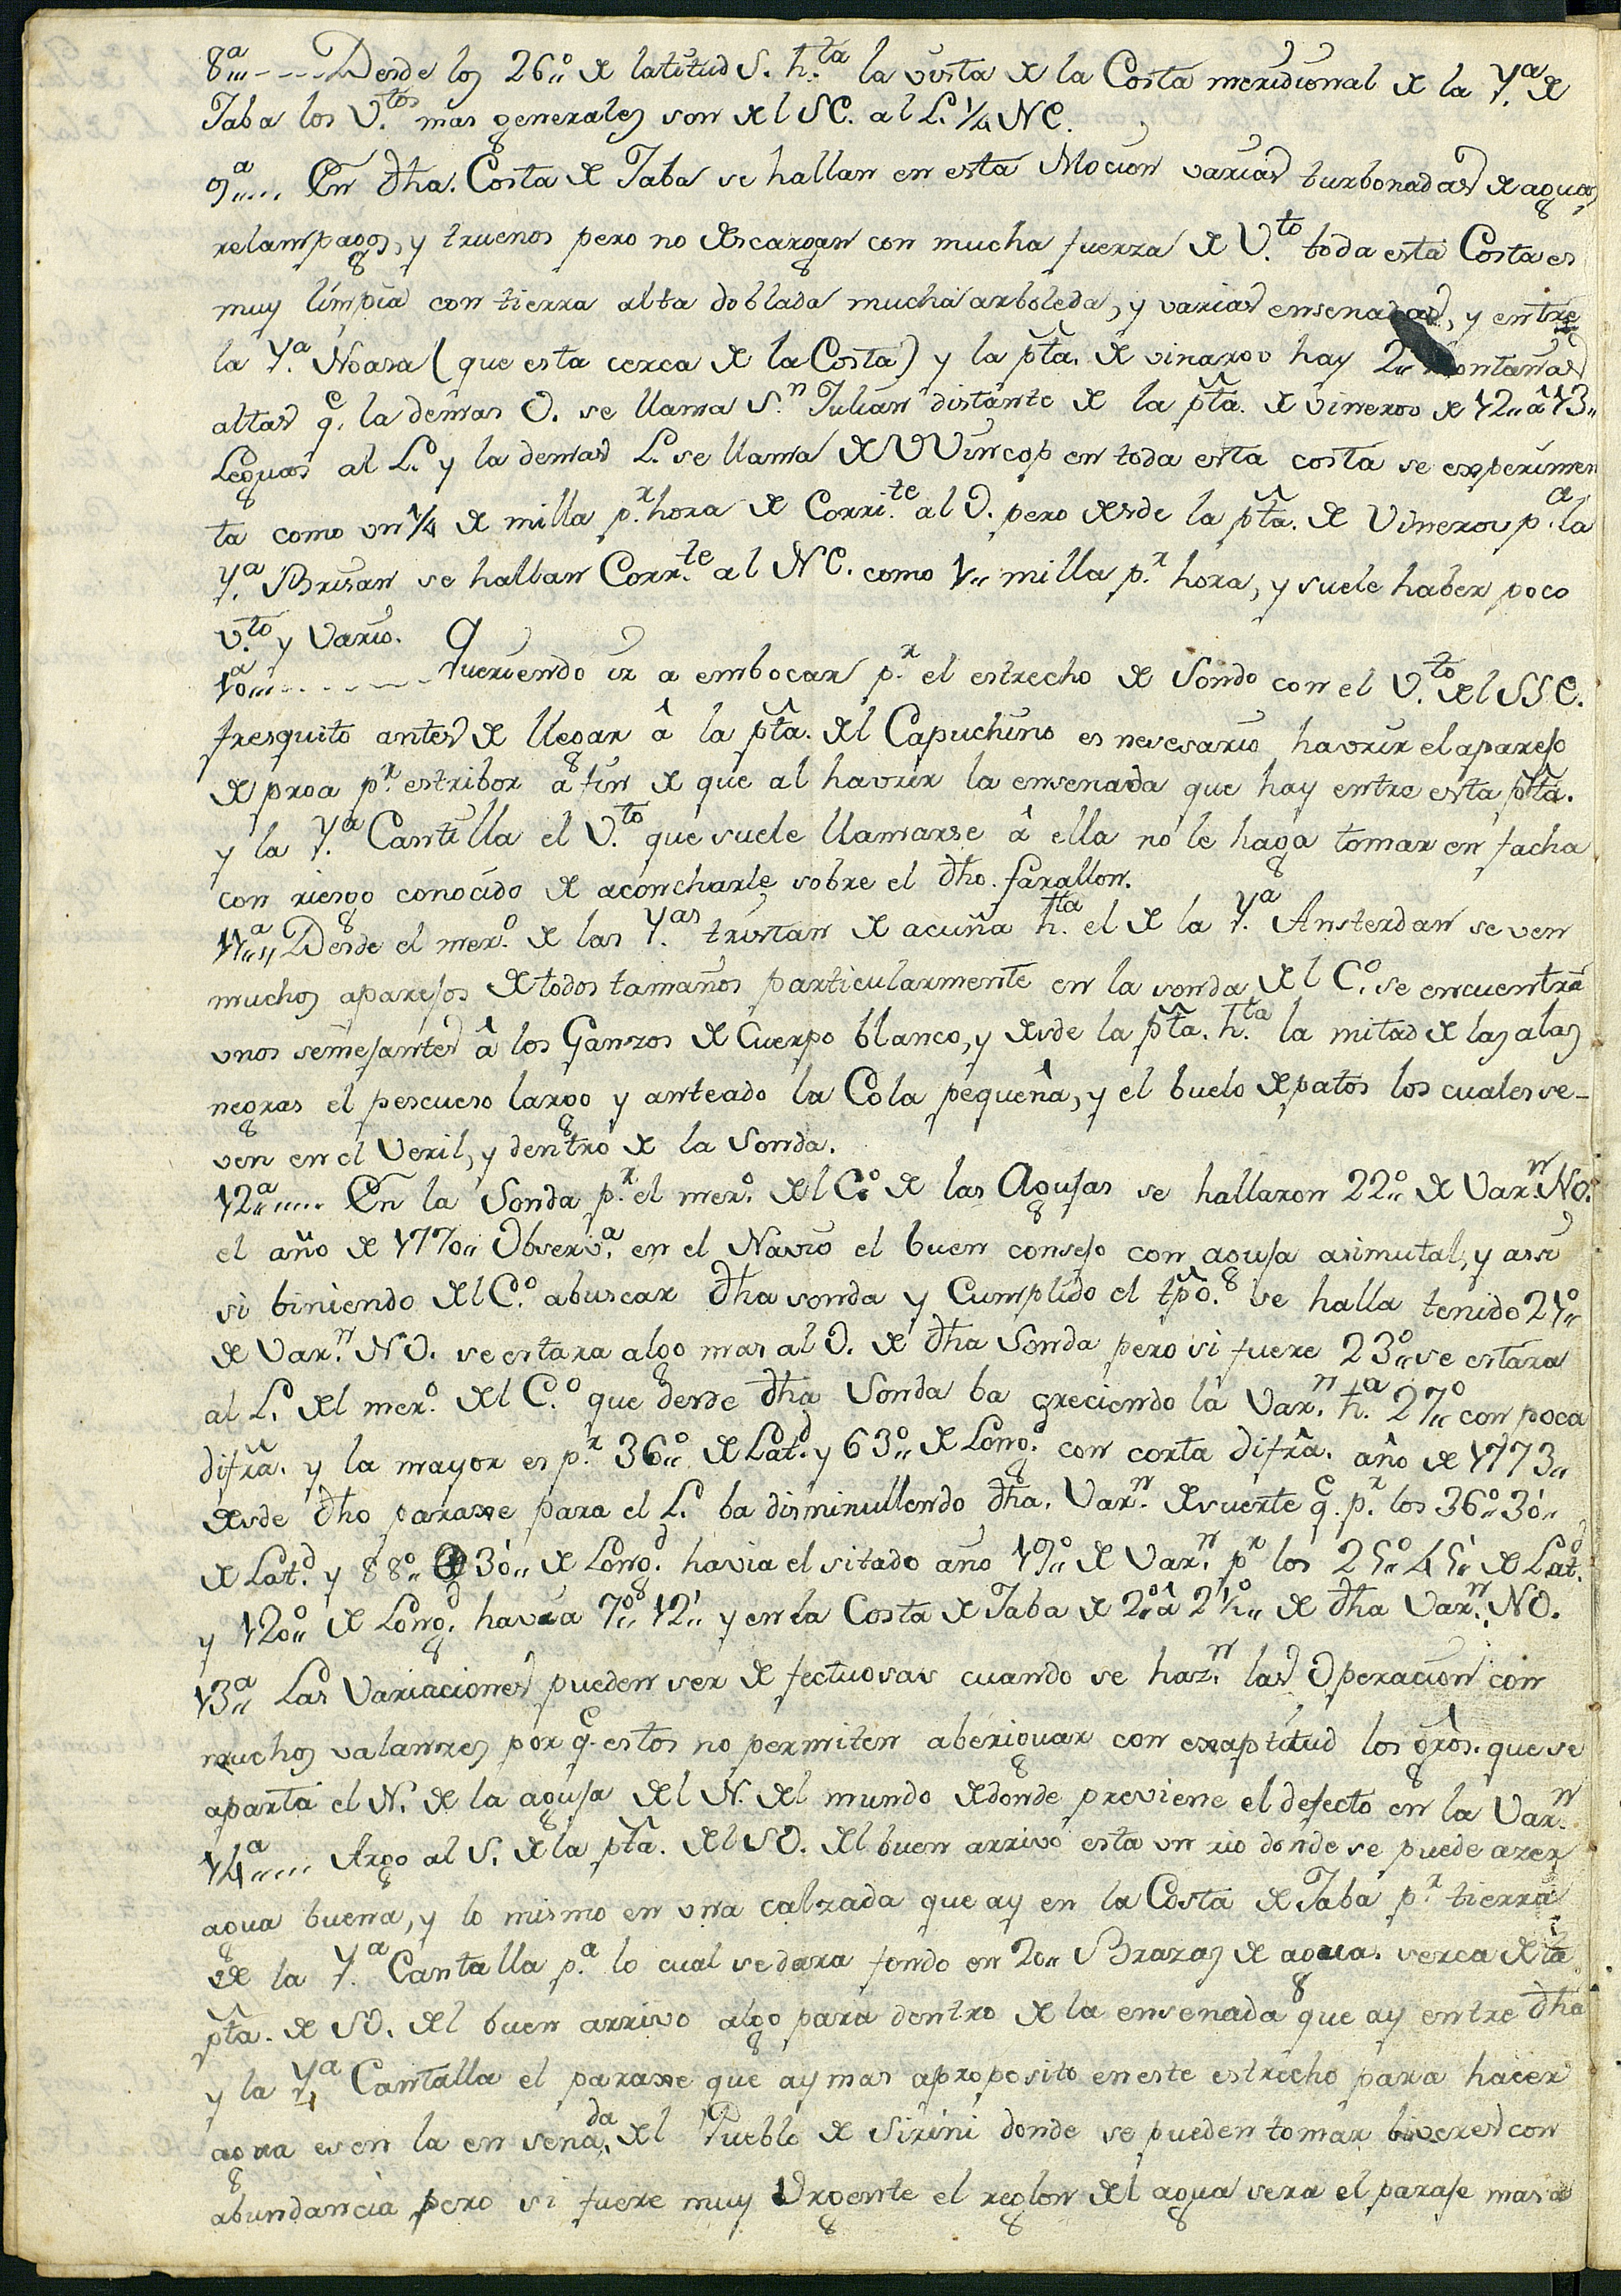 8ª,,,---- Desde los 26,,º de latitud S. h.ta la vista de la Costa meridional de la Y.ª de
Jaba los V.tos mas generales son del SE. al L. 1/4 NE.
9ª,,... En dha. Costa de Jaba se hallan en esta Mocion varias turbonadas de aguas
relampagos, y truenos pero no descargan con mucha fuerza de V.to toda esta Costa es
muy limpia con tierra alta doblada mucha arboleda, y varias ensenadas, y entre
la Y.ª Noasa (que esta cerca de la Costa) y la pta. de vinaroo hay 2,, montañas
altas q.e la demas O. se llama S.n Julian distante de la pta. de vineroo de 12,, â 13,,
Leguas al L.º y la demas L. se llama de VVincop en toda esta costa se experimen
ta como vn 1/4 de milla p.r hora de Corri.te al O. pero desde la pta. de Vinerou p.ª la
Y.ª Brisan se hallan Corr.te al NE. como 1,, milla p.r hora, y suele haber poco
V.to y Vario.
10ª,,,------- Queriendo ir a embocar p.r el estrecho de Sondo con el V.to del SSE.
fresquito antes de llegar â la pta. del Capuchino es nesesario havrir el aparejo
de proa p.r estribor a fin de que al havrir la ensenada que hay entre esta pta.
y la Y.ª Cantilla el V.to que suele llamarse â ella no le haga tomar en facha
con riesgo conocido de aconcharle sobre el dho. farallon.
11ª,,,, Desde el mer.º de las Y.as tristan de acuña h.ta el de la Y.ª Ansterdan se ven
muchos aparejos de todos tamaños particularmente en la sonda del C.º se encuentrã
vnos semejantes â los Ganzos de Cuerpo blanco, y desde la pta. h.ta la mitad de las alas
negras el pescueso largo y anteado la Cola pequeña, y el buelo de patos los cuales se-
ven en el Veril, y dentro de la Sonda.
12ª,,.... En la Sonda p.r el mer.º del C.º de las Agujas se hallaron 22,,º de Var.n NO.
el año de 1770,, Observ.ª en el Navio el buen consejo con aguja asimutal, y assi
si biniendo del C.º abuscar dha sonda y Cumplido el tpo. se halla tenido 21,,º
de Var.n NO. se estara algo mas al O. de dha Sonda pero si fuere 23,,º se estara
al L. del mer.º del C.º que desde dha Sonda ba creciendo la Var.n h.ta 27,,º con poca
difrã. y la mayor es p.r 36,,º de Lat.d y 63,,º de Long.d con corta difrã. año de 1773,,
desde dho paraxe para el L. ba disminullendo dha. Var.n de suerte q.e p.r los 36,,º 30,,'
de Lat.d y 88,,º 30,,' de Long.d havia el sitado año 19,,º de Var.n p.r los 25,,º 45,,' de Lat.d
y 120,,º de Long.d havia 7,,º 12,,' y en la Costa de Jaba de 2,,º â 2 1/2,,º de dha Var.n NO.
13ª,, Las Variaciones pueden ser defectuosas cuando se haz.n las Operacion con
muchos valances por q.e estos no permiten aberiguar con exaptitud los grôs. que se
aparta el N. de la aguja del N. del mundo de donde previene el defecto en la Var.n
14ª,,.... Argo al S. de la pta. del SO. del buen arrivo esta vn rio donde se puede azer
agua buena, y lo mismo en vna calzada que ay en la Costa de Jaba p.r tierra
de la Y.ª Cantalla p.ª lo cual se dara fondo en 20,, Brazas de agua. serca de la
pta. de SO. del buen arrivo algo para dentro de la ensenada que ay entre dha
y la Y.ª Cantalla el paraxe que ay mas aproposito en este estrecho para hacer
agua es en la ensena.da del Pueblo de Sirini donde se pueden tomar biveres con
abundancia pero si fuere muy Urgente el reglon del agua sera el paraje mas a